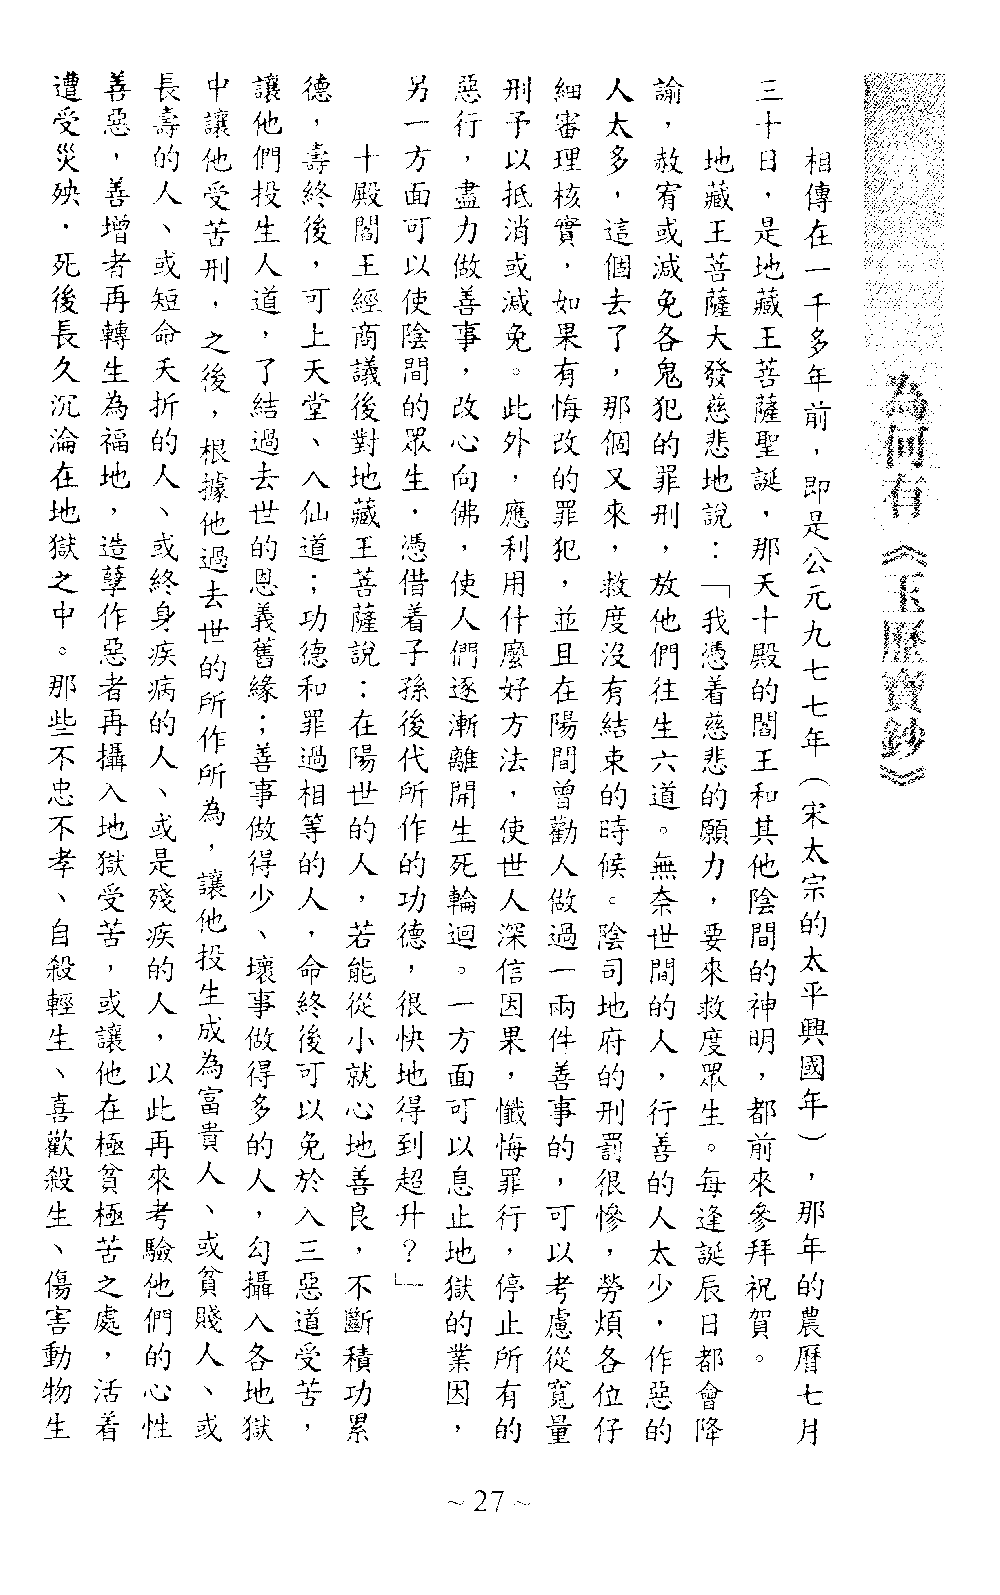 為何有《玉歷寶鈔》
相傳在一千多年前，即是公元九七七年（宋太宗的太平興國年），那年的農曆七月
三十日，是地藏王菩薩聖誕，那天十殿的閻王和其他陰間的神明，都前來參拜祝賀。
地藏王菩薩大發慈悲地說：「我憑着慈悲的願力，要來救度眾生。每逢誕辰日都會降
諭，赦宥或減免各鬼犯的罪刑，放他們往生六道。無奈世間的人，行善的人太少，作惡的
人太多，這個去了，那個又來，救度沒有結束的時候。陰司地府的刑罰很慘，勞煩各位仔
細審理核實，如果有悔改的罪犯，並且在陽間曾勸人做過一兩件善事的，可以考慮從寬量
刑予以抵消或減免。此外，應利用什麼好方法，使世人深信因果，懺悔罪行，停止所有的
惡行，盡力做善事，改心向佛，使人們逐漸離開生死輪迴。一方面可以息止地獄的業因，
另一方面可以使陰間的眾生，憑借着子孫後代所作的功德，很快地得到超升？」
十殿閻王經商議後對地藏王菩薩說：在陽世的人，若能從小就心地善良，不斷積功累
德，壽終後，可上天堂、入仙道；功德和罪過相等的人，命終後可以免於入三惡道受苦，
讓他們投生人道，了結過去世的恩義舊緣；善事做得少、壞事做得多的人，勾攝入各地獄
中讓他受苦刑，之後，根據他過去世的所作所為，讓他投生成為富貴人、或貧賤人、或
長壽的人、或短命夭折的人、或終身疾病的人、或是殘疾的人，以此再來考驗他們的心性
善惡，善增者再轉生為福地，造孽作惡者再攝入地獄受苦，或讓他在極貧極苦之處，活着
遭受災殃，死後長久沉淪在地獄之中。那些不忠不孝、自殺輕生、喜歡殺生、傷害動物生
~27~